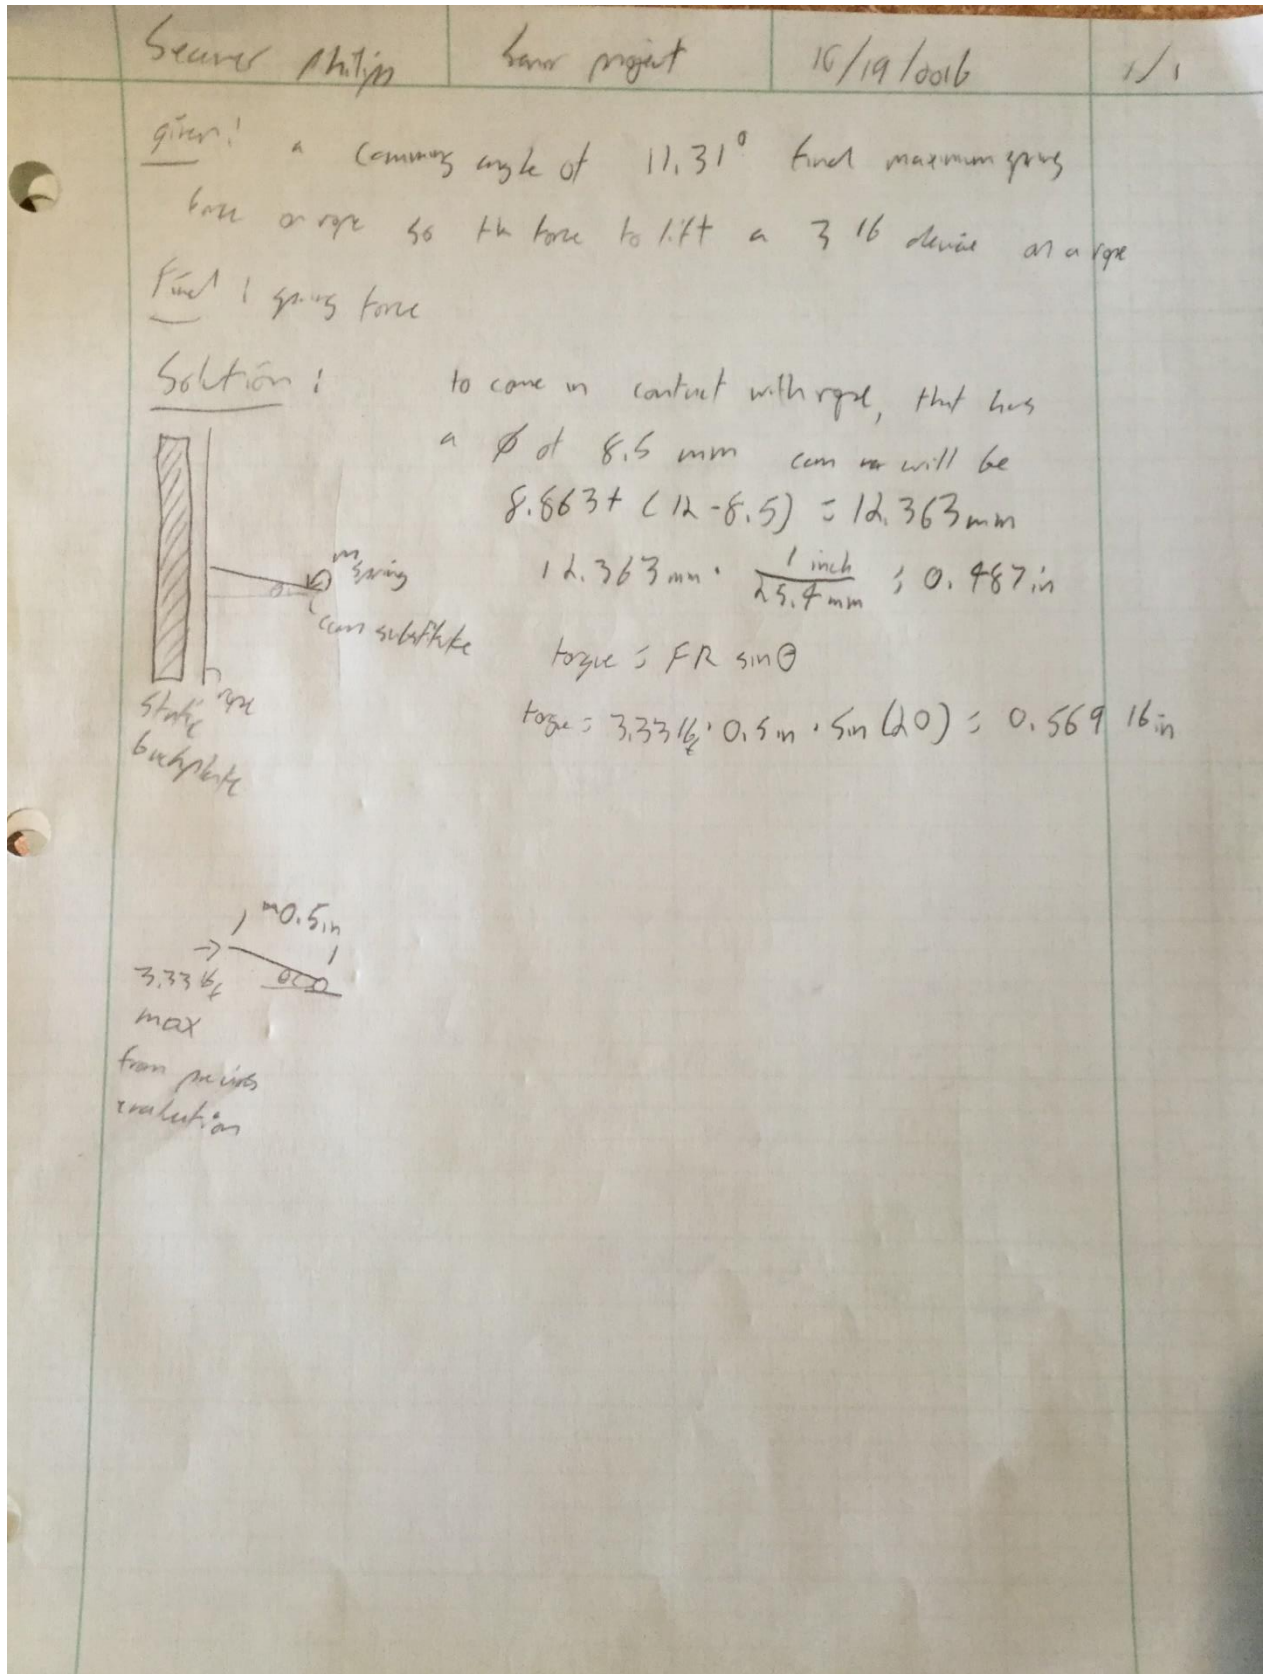 philips
project
16/19/0016
1/1
given: a camming angle of 11.31° find maximum spring
force on rope so the force to lift a 3 lb device on a rope
Find: spring force
Solution: to come in contact with rope, that has
a Ø of 8.5 mm cam will be
8.863 + (12 - 8.5) = 12.363 mm
12.363 mm · 1 inch / 25.4 mm = 0.487 in
m spring
cam substitute
torque = FR sin θ
torque = 3.33 lbf · 0.5 in · sin (20) = 0.569 lb in
static rope
backplate
0.5 in
3.33 lbf
max
from previous
evaluation